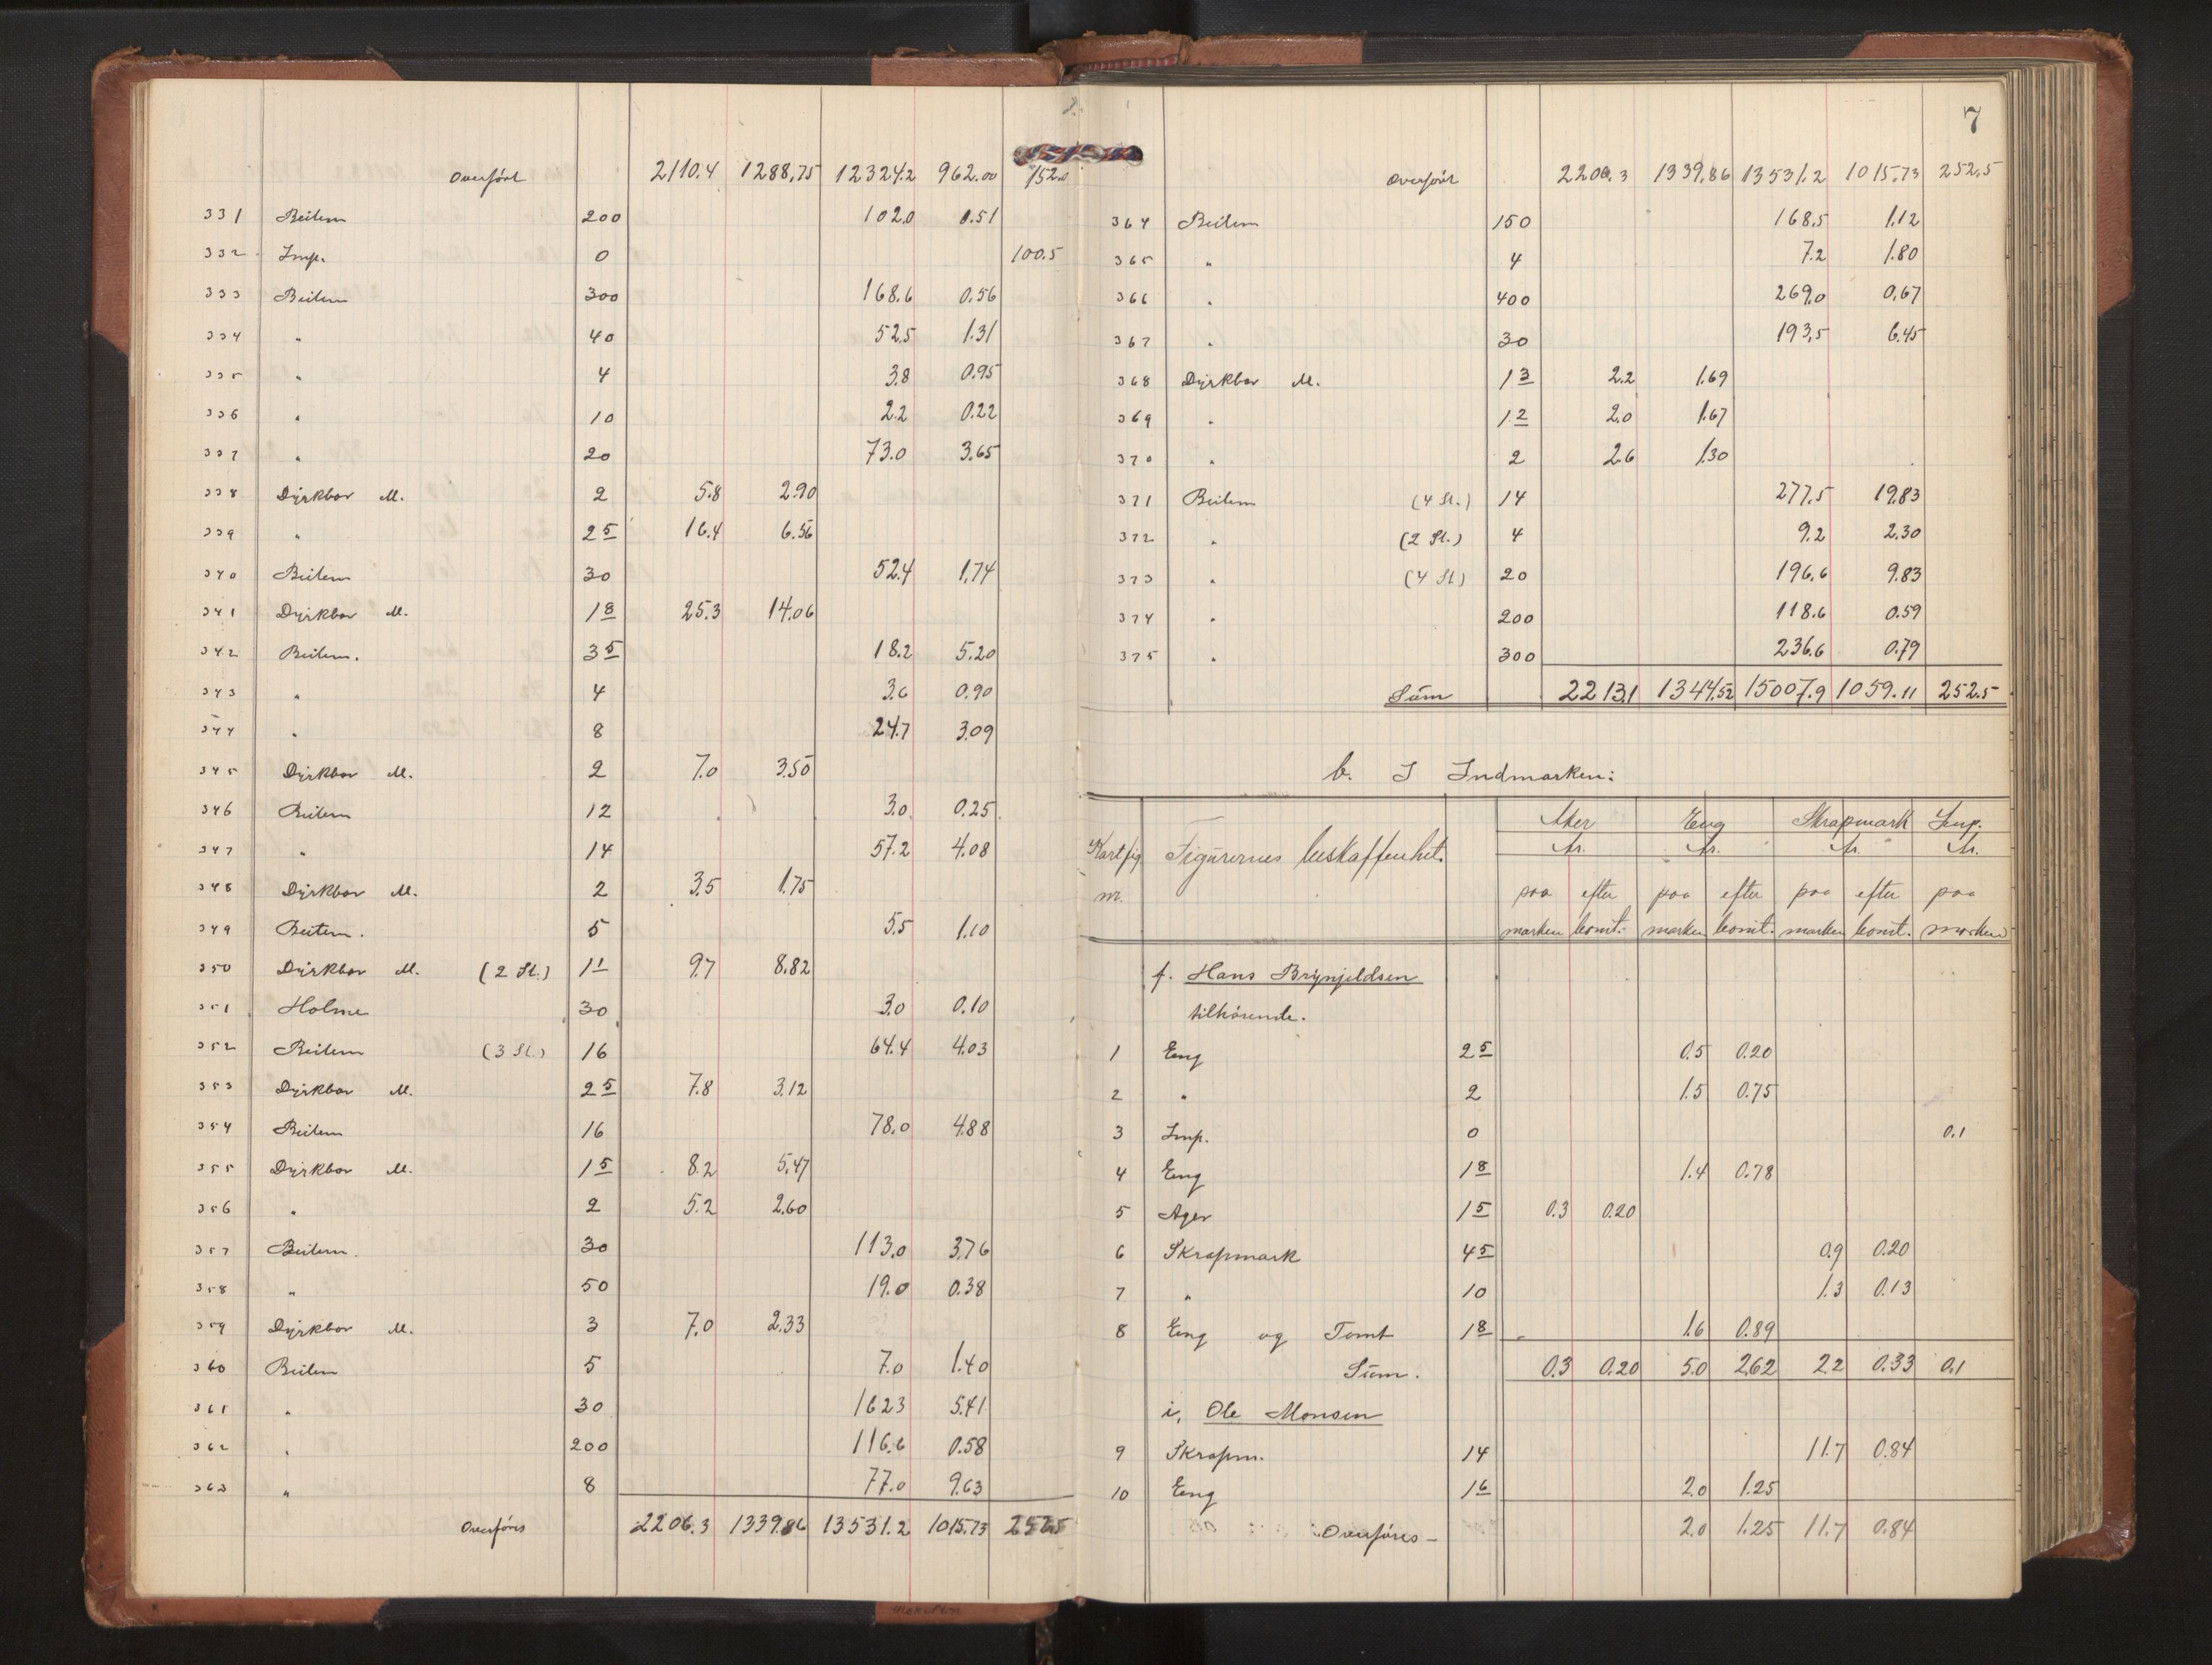 Overført 2110.4 1288.75 12324.2 962.00 152.0
331 Beitem 200 102.0 0.51
332 Imp. 0 100.5
333 Beitem 300 168.6 0.56
334 " 40 52.5 1.31
335 " 4 3.8 0.95
336 " 10 2.2 0.22
337 " 20 73.0 3.65
338 Dyrkbar M. 2 5.8 2.90
339 " 2 5 16.4 6.56
340 Beitem 30 52.4 1.74
341 Dyrkbar M. 1 8 25.3 14.06
342 Beitem. 3 5 18.2 5.20
343 " 4 3.6 0.90
344 " 8 24.7 3.09
345 Dyrkbar M. 2 7.0 3.50
346 Beitem 12 3.0 0.25
347 " 14 57.2 4.08
348 Dyrkbar M. 2 3.5 1.75
349 Beitem. 5 5.5 1.10
350 Dyrkbar M. (2 St.) 1 1 9.7 8.82
351 Holme 30 3.0 0.10
352 Beitem (3 St.) 16 64.4 4.03
353 Dyrkbar M. 2 5 7.8 3.12
354 Beitem 16 78.0 4.88
355 Dyrkbar M. 1 5 8.2 5.47
356 " 2 5.2 2.60
357 Beitem. 30 113.0 3.76
358 " 50 19.0 0.38
359 Dyrkbar M. 3 7.0 2.33
360 Beitem 5 7.0 1.40
361 " 30 162.3 5.41
362 " 200 116.6 0.58
363 " 8 77.0 9.63
Overføres 2206.3 1339.86 13531.2 1015.73 252.5
7
Overført 2206.3 1339.86 13531.2 1015.73 252.5
364 Beitem 150 168.5 1.12
365 " 4 7.2 1.80
366 " 400 269.0 0.67
367 " 30 193.5 6.45
368 Dyrkbar M. 1 3 2.2 1.69
369 " 1 2 2.0 1.67
370 " 2 2.6 1.30
371 Beitem (4 St.) 14 277.5 19.83
372 " (2 St.) 4 9.2 2.30
373 " (4 St) 20 196.6 9.83
374 " 200 118.6 0.59
375 " 300 236.6 0.79
Sum 2213.1 1344.52 15007.9 1059.11 252.5
b. I Indmarken:
Aker Eng Skrapmark Imp.
Kartfig Figurernes beskaffenhet. Ar. Ar. Ar. Ar.
nr. paa efter paa efter paa efter paa
marken bonit. marken bonit. marken bonit. marken
f. Hans Brynjeldsen
tilhørende.
1 Eng 2 5 0.5 0.20
2 " 2 1.5 0.75
3 Imp. 0 0.1
4 Eng 1 8 1.4 0.78
5 Ager 1 5 0.3 0.20
6 Skrapmark 4 5 0.9 0.20
7 " 10 1.3 0.13
8 Eng og Tomt 1 8 1.6 0.89
Sum. 0.3 0.20 5.0 2.62 2.2 0.33 0.1
i, Ole Monsen
9 Skrapm. 14 11.7 0.84
10 Eng 1 6 2.0 1.25
Overføres - 2.0 1.25 11.7 0.84